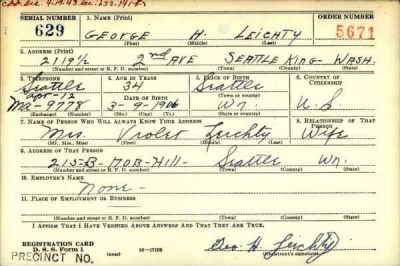 SERIAL NUMBER 1. NAME (Print) ORDER NUMBER
629 GEORGE H. LEICHTY 5671
(First) (Middle) (Last)
2. ADDRESS (Print)
2119½ 2nd AVE SEATTLE KING- WASH.
(Number and street or R. F. D. number) (Town) (County) (State)
3. TELEPHONE 4. AGE IN YEARS 5. PLACE OF BIRTH 6. COUNTRY OF CITIZENSHIP
Seattle 34 Seattle
apt-12 DATE OF BIRTH (Town or county)
Ma-9778 3-9-1906 Wn. U.S.
(Exchange) (Number) (Mo.) (Day) (Yr.) (State or country)
7. NAME OF PERSON WHO WILL ALWAYS KNOW YOUR ADDRESS 8. RELATIONSHIP OF THAT PERSON
Mrs. Violet Leichty Wife
(Mr., Mrs., Miss) (First) (Middle) (Last)
9. ADDRESS OF THAT PERSON
215-B-NOB-Hill- Seattle Wn.
(Number and street or R. F. D. number) (Town) (County) (State)
10. EMPLOYER'S NAME
None-
11. PLACE OF EMPLOYMENT OR BUSINESS
(Number and street or R. F. D. number) (Town) (County) (State)
I AFFIRM THAT I HAVE VERIFIED ABOVE ANSWERS AND THAT THEY ARE TRUE.
REGISTRATION CARD
D. S. S. Form 1 (over) 16-17105 Geo. H. Leichty
PRECINCT NO. (Registrant's signature)